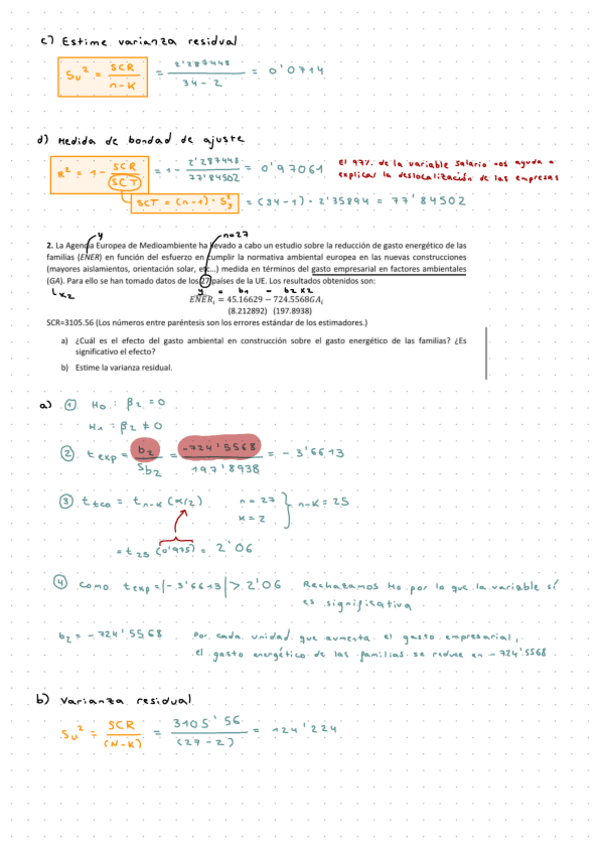 c) Estime varianza residual
Su² = SCR / n-K = 2'287448 / 34-2 = 0'0714
d) Medida de bondad de ajuste
R² = 1 - SCR / SCT = 1 - 2'287448 / 77'84502 = 0'97061
El 97% de la variable salario nos ayuda a
explicar la deslocalización de las empresas
SCT = (n-1) · S²y = (34-1) · 2'35894 = 77'84502
y
n=27
2. La Agencia Europea de Medioambiente ha llevado a cabo un estudio sobre la reducción de gasto energético de las
familias (ENER) en función del esfuerzo en cumplir la normativa ambiental europea en las nuevas construcciones
(mayores aislamientos, orientación solar, etc...) medida en términos del gasto empresarial en factores ambientales
(GA). Para ello se han tomado datos de los 27 países de la UE. Los resultados obtenidos son:
x2
y = b1 - b2 x2
ENERᵢ = 45.16629 − 724.5568GAᵢ
(8.212892) (197.8938)
SCR=3105.56 (Los números entre paréntesis son los errores estándar de los estimadores.)
a) ¿Cuál es el efecto del gasto ambiental en construcción sobre el gasto energético de las familias? ¿Es
significativo el efecto?
b) Estime la varianza residual.
a) 1 H0 : β2 = 0
H1 : β2 ≠ 0
2 t exp = b2 / Sb2 = -724'5568 / 197'8938 = - 3'6613
3 t teo = t n-K (α/2) n = 27
K = 2
n-K = 25
= t 25 (0'975) = 2'06
4 Como t exp = |- 3'6613| > 2'06 Rechazamos H0 por lo que la variable sí
es significativa
b2 = - 724'5568 Por cada unidad que aumenta el gasto empresarial,
el gasto energético de las familias se reduce en -724'5568
b) Varianza residual
Su² = SCR / (N-K) = 3105'56 / (27-2) = 124'224